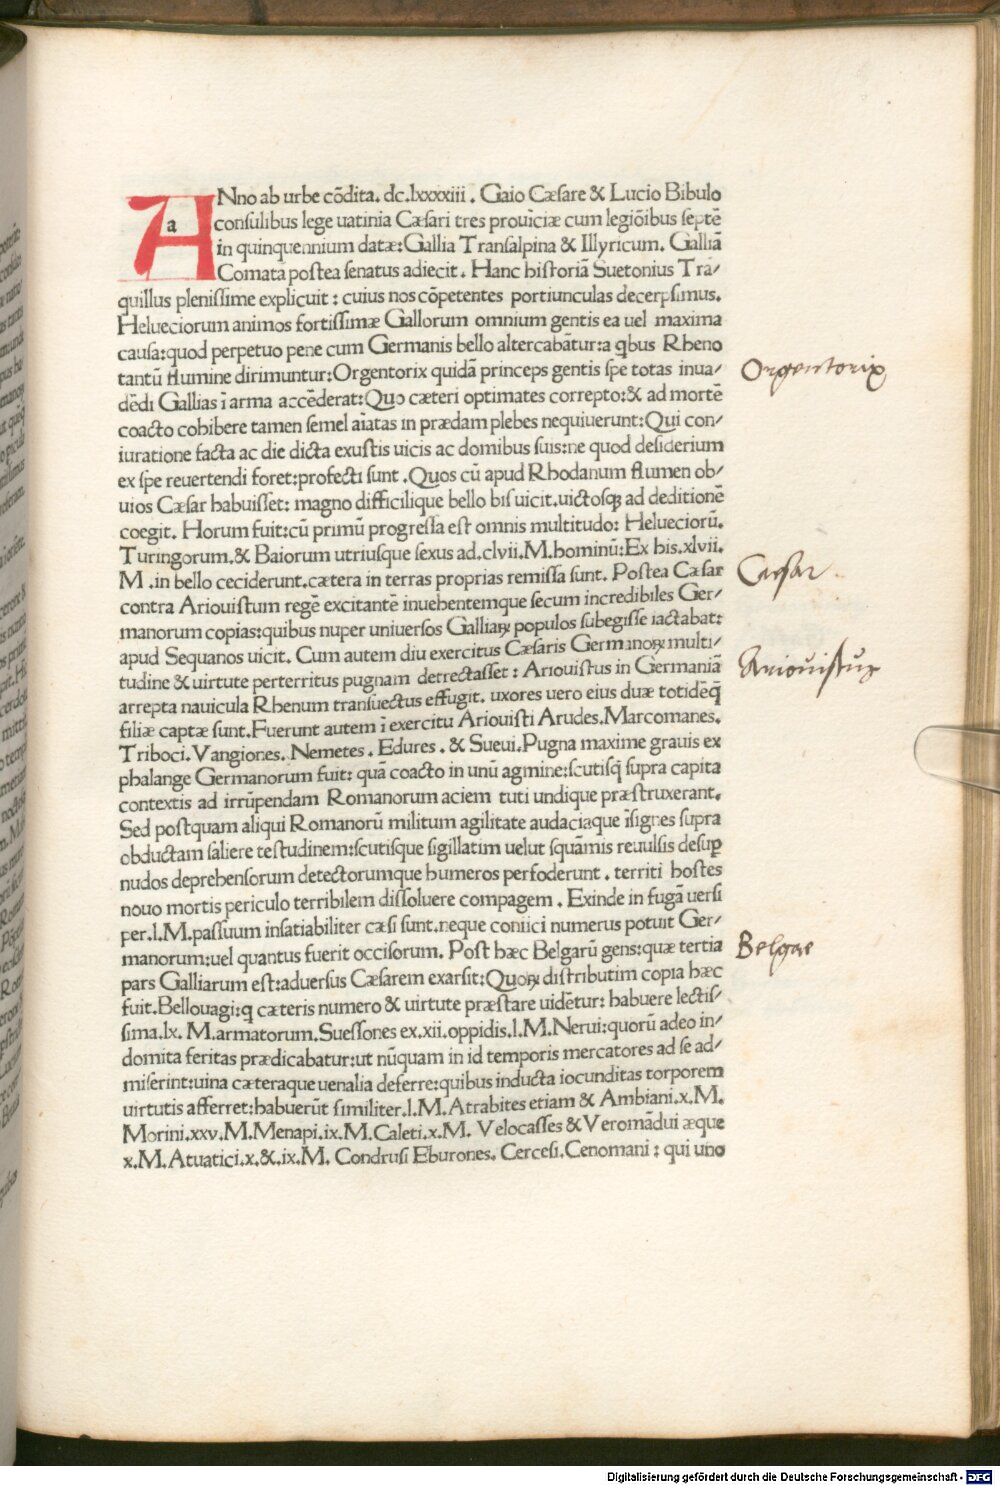 ANno ab urbe cōdita. dc.lxxxxiii. Gaio Cæsare & Lucio Bibulo
a
consulibus lege uatinia Cæsari tres prouīciæ cum legiōibus septē
in quinquennium datæ: Gallia Transalpina & Illyricum. Galliā
Comatā postea senatus adiecit. Hanc historiā Suetonius Tra-
quillus plenissime explicuit: cuius nos cōpetentes portiunculas decerpsimus.
Helueciorum animos fortissimæ Gallorum omnium gentis ea uel maxima
causa: quod perpetuo pene cum Germanis bello altercabātur: a qbus Rheno
tantū flumine dirimuntur: Orgentorix quidā princeps gentis spe totas inua/
dēdi Gallias ī arma accēderat: Quo cæteri optimates correpto: & ad mortē
coacto cohibere tamen semel aīatas in prædam plebes nequiuerunt: Qui con/
iuratione facta ac die dicta exustis uicis ac domibus suis: ne quod desiderium
ex spe reuertendi foret: profecti sunt. Quos cū apud Rhodanum flumen ob/
uios Cæsar habuisset: magno difficilique bello bis uicit. uictosqꝫ ad deditionē
coegit. Horum fuit: cū primū progressa est omnis multitudo: Helueciorū.
Turingorum. & Baiorum utriusque sexus ad. clvii. M. hominū: Ex his. xlvii.
M. in bello ceciderunt. cætera in terras proprias remissa sunt. Postea Cæsar
contra Ariouistum regē excitantē inuehentemque secum incredibiles Ger/
manorum copias: quibus nuper uniuersos Galliaꝝ populos subegisse iactabat:
apud Sequanos uicit. Cum autem diu exercitus Cæsaris Germanoꝝ multi/
tudine & uirtute perterritus pugnam detrectasset: Ariouistus in Germaniā
arrepta nauicula Rhenum transuectus effugit. uxores uero eius duæ totidēq̄
filiæ captæ sunt. Fuerunt autem ī exercitu Ariouisti Arudes. Marcomanes.
Triboci. Vangiones. Nemetes. Edures. & Sueui. Pugna maxime grauis ex
phalange Germanorum fuit: quā coacto in unū agmine: scutisq̄ supra capita
contextis ad irrūpendam Romanorum aciem tuti undique præstruxerant.
Sed postquam aliqui Romanorū militum agilitate audaciaque īsignes supra
obductam saliere testudinem: scutisque sigillatim uelut squāmis reuulsis desuꝑ
nudos deprehensorum detectorumque humeros perfoderunt. territi hostes
nouo mortis periculo terribilem dissoluere compagem. Exinde in fugā uersi
per. l. M. passuum insatiabiliter cæsi sunt. neque coniici numerus potuit Ger/
manorum: uel quantus fuerit occisorum. Post hæc Belgarū gens: quæ tertia
pars Galliarum est: aduersus Cæsarem exarsit: Quoꝝ distributim copia hæc
fuit. Bellouagi: q̄ cæteris numero & uirtute præstare uidētur: habuere lectis/
sima. lx. M. armatorum. Suessones ex. xii. oppidis. l. M. Nerui: quorū adeo in/
domita feritas prædicabatur: ut nūquam in id temporis mercatores ad se ad/
miserint: uina cæteraque uenalia deferre: quibus inducta iocunditas torporem
uirtutis afferret: habuerūt similiter. l. M. Atrabites etiam & Ambiani. x. M.
Morini. xxv. M. Menapi. ix. M. Caleti. x. M. Velocasses & Veromādui æque
x. M. Atuatici. x. &. ix. M. Condrusi Eburones. Cercesi. Cenomani: qui uno
Orgentorix
Caesar
Ariouistus
Belgae
Digitalisierung gefördert durch die Deutsche Forschungsgemeinschaft - DFG